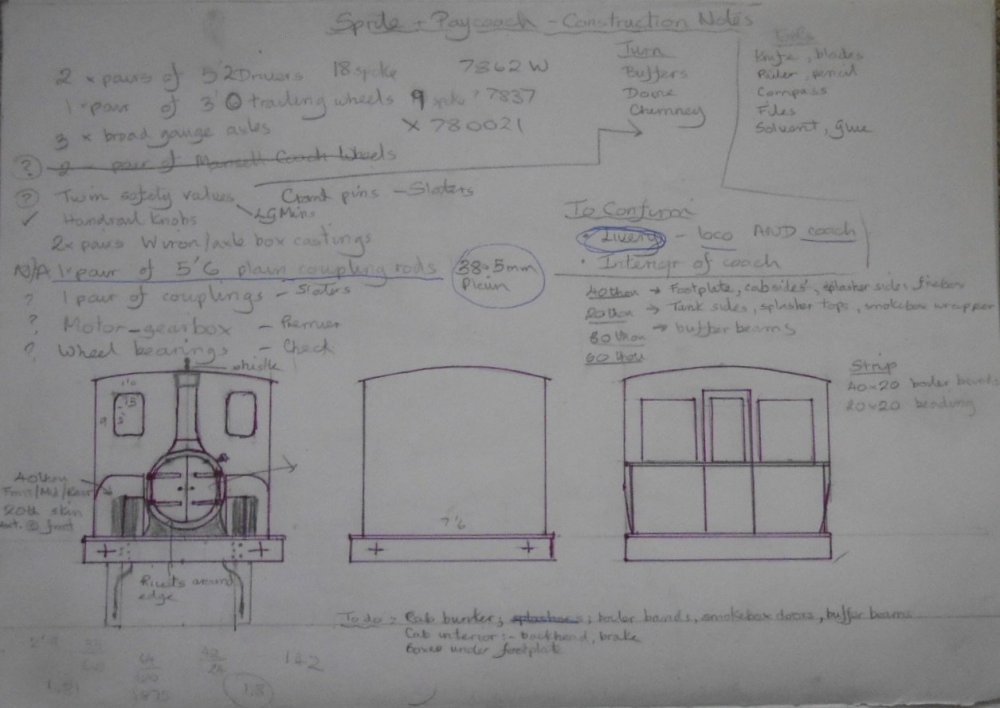 Sprite + Paycoach - Construction Notes
2 x pairs of 5'2 Drivers 18 spoke 7862 W
1 pair of 3'0 trailing wheels 9 spoke ? 7837
3 x broad gauge axles X 780021
? 2 pair of Mansell Coach Wheels
? Twin safety valves Crank pins - Slaters
LG Mins
✓ Handrail Knobs
2 x pairs W iron/axle box castings
N/A 1 pair of 5'6 plain coupling rods 38.5mm
Plain
? 1 pair of couplings - Slaters
? Motor-gearbox - Premier
? Wheel bearings - Check
Turn
Buffers
Dome
Chimney
Tools
Knife, blades
Ruler, pencil
Compass
Files
Solvent, glue
To Confirm
• Livery - loco AND coach
• Interior of coach
40thou → Footplate, cabsides, splasher sides, firebox
20thou → Tank sides, splasher tops, smokebox wrapper
80thou → buffer beams
60thou
Strip
40x20 boiler bands
20x20 beading
whistle
1'0
9
40thou
Front/Mid/Rear
20th skin
@ front
7'6
Rivets around
edge
To do :- Cab bunker, splashers, boiler bands, smokebox doors, buffer beams
Cab interior :- backhead, brake
Boxes under footplate
1.8